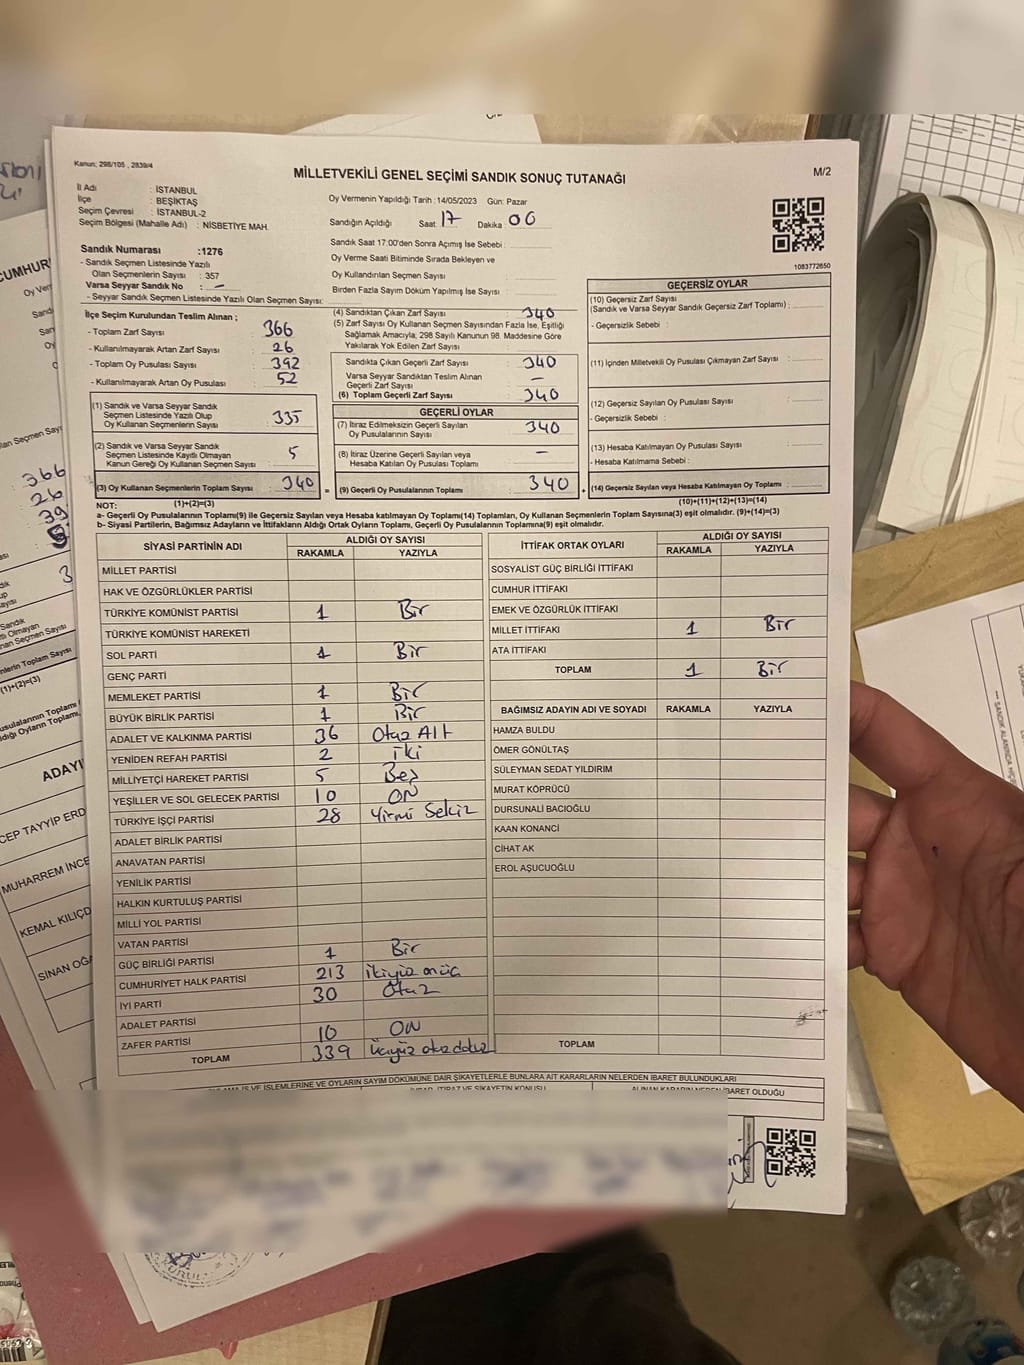 Kanun: 298/105 , 2839/4
MİLLETVEKİLİ GENEL SEÇİMİ SANDIK SONUÇ TUTANAĞI
M/2
İl Adı : İSTANBUL
İlçe : BEŞİKTAŞ
Seçim Çevresi : İSTANBUL-2
Seçim Bölgesi (Mahalle Adı) : NİSBETİYE MAH.
Oy Vermenin Yapıldığı Tarih :14/05/2023 Gün: Pazar
Sandığın Açıldığı Saat 17 Dakika 00
Sandık Saat 17:00'den Sonra Açımış İse Sebebi :
Oy Verme Saati Bitiminde Sırada Bekleyen ve
Oy Kullandırılan Seçmen Sayısı
Birden Fazla Sayım Döküm Yapılmış İse Sayısı :
1083772650
Sandık Numarası :1276
- Sandık Seçmen Listesinde Yazılı
Olan Seçmenlerin Sayısı : 357
Varsa Seyyar Sandık No : -
- Seyyar Sandık Seçmen Listesinde Yazılı Olan Seçmen Sayısı:
İlçe Seçim Kurulundan Teslim Alınan ;
- Toplam Zarf Sayısı : 366
- Kullanılmayarak Artan Zarf Sayısı : 26
- Toplam Oy Pusulası Sayısı : 392
- Kullanılmayarak Artan Oy Pusulası : 52
(1) Sandık ve Varsa Seyyar Sandık
Seçmen Listesinde Yazılı Olup
Oy Kullanan Seçmenlerin Sayısı : 335
(2) Sandık ve Varsa Seyyar Sandık
Seçmen Listesinde Kayıtlı Olmayan
Kanun Gereği Oy Kullanan Seçmen Sayısı : 5
(3) Oy Kullanan Seçmenlerin Toplam Sayısı : 340
(4) Sandıktan Çıkan Zarf Sayısı : 340
(5) Zarf Sayısı Oy Kullanan Seçmen Sayısından Fazla İse, Eşitliği
Sağlamak Amacıyla; 298 Sayılı Kanunun 98. Maddesine Göre
Yakılarak Yok Edilen Zarf Sayısı :
Sandıkta Çıkan Geçerli Zarf Sayısı : 340
Varsa Seyyar Sandıktan Teslim Alınan
Geçerli Zarf Sayısı : -
(6) Toplam Geçerli Zarf Sayısı : 340
GEÇERLİ OYLAR
(7) İtiraz Edilmeksizin Geçerli Sayılan
Oy Pusulalarının Sayısı : 340
(8) İtiraz Üzerine Geçerli Sayılan veya
Hesaba Katılan Oy Pusulası Toplamı : -
= (9) Geçerli Oy Pusulalarının Toplamı : 340
GEÇERSİZ OYLAR
(10) Geçersiz Zarf Sayısı
(Sandık ve Varsa Seyyar Sandık Geçersiz Zarf Toplamı) :
- Geçersizlik Sebebi :
(11) İçinden Milletvekili Oy Pusulası Çıkmayan Zarf Sayısı :
(12) Geçersiz Sayılan Oy Pusulası Sayısı :
- Geçersizlik Sebebi :
(13) Hesaba Katılmayan Oy Pusulası Sayısı :
- Hesaba Katılmama Sebebi :
+ (14) Geçersiz Sayılan veya Hesaba Katılmayan Oy Toplamı :
NOT: (1)+(2)=(3)
(10)+(11)+(12)+(13)=(14)
a- Geçerli Oy Pusulalarının Toplamı(9) ile Geçersiz Sayılan veya Hesaba katılmayan Oy Toplamı(14) Toplamları, Oy Kullanan Seçmenlerin Toplam Sayısına(3) eşit olmalıdır. (9)+(14)=(3)
b- Siyasi Partilerin, Bağımsız Adayların ve İttifakların Aldığı Ortak Oyların Toplamı, Geçerli Oy Pusulalarının Toplamına(9) eşit olmalıdır.
SİYASİ PARTİNİN ADI ALDIĞI OY SAYISI
RAKAMLA YAZIYLA
MİLLET PARTİSİ
HAK VE ÖZGÜRLÜKLER PARTİSİ
TÜRKİYE KOMÜNİST PARTİSİ 1 Bir
TÜRKİYE KOMÜNİST HAREKETİ
SOL PARTİ 1 Bir
GENÇ PARTİ
MEMLEKET PARTİSİ 1 Bir
BÜYÜK BİRLİK PARTİSİ 1 Bir
ADALET VE KALKINMA PARTİSİ 36 Otuz Altı
YENİDEN REFAH PARTİSİ 2 iki
MİLLİYETÇİ HAREKET PARTİSİ 5 Beş
YEŞİLLER VE SOL GELECEK PARTİSİ 10 ON
TÜRKİYE İŞÇİ PARTİSİ 28 Yirmi Sekiz
ADALET BİRLİK PARTİSİ
ANAVATAN PARTİSİ
YENİLİK PARTİSİ
HALKIN KURTULUŞ PARTİSİ
MİLLİ YOL PARTİSİ
VATAN PARTİSİ
GÜÇ BİRLİĞİ PARTİSİ 1 Bir
CUMHURİYET HALK PARTİSİ 213 ikiyüz onüç
İYİ PARTİ 30 Otuz
ADALET PARTİSİ
ZAFER PARTİSİ 10 ON
TOPLAM 339 üçyüz otuzdokuz
İTTİFAK ORTAK OYLARI ALDIĞI OY SAYISI
RAKAMLA YAZIYLA
SOSYALİST GÜÇ BİRLİĞİ İTTİFAKI
CUMHUR İTTİFAKI
EMEK VE ÖZGÜRLÜK İTTİFAKI
MİLLET İTTİFAKI 1 Bir
ATA İTTİFAKI
TOPLAM 1 Bir
BAĞIMSIZ ADAYIN ADI VE SOYADI RAKAMLA YAZIYLA
HAMZA BULDU
ÖMER GÖNÜLTAŞ
SÜLEYMAN SEDAT YILDIRIM
MURAT KÖPRÜCÜ
DURSUNALİ BACIOĞLU
KAAN KONANCİ
CİHAT AK
EROL AŞUCUOĞLU
TOPLAM
İŞ VE İŞLEMLERİNE VE OYLARIN SAYIM DÖKÜMÜNE DAİR ŞİKAYETLERLE BUNLARA AİT KARARLARIN NELERDEN İBARET BULUNDUKLARI
İBARET OLDUĞU
CUMHUR
Oy Ver
366
26
39
3
(1)+(2)=(3)
ADAYI
CEP TAYYİP ERD
MUHARREM İNCE
KEMAL KILIÇD
SİNAN OĞA